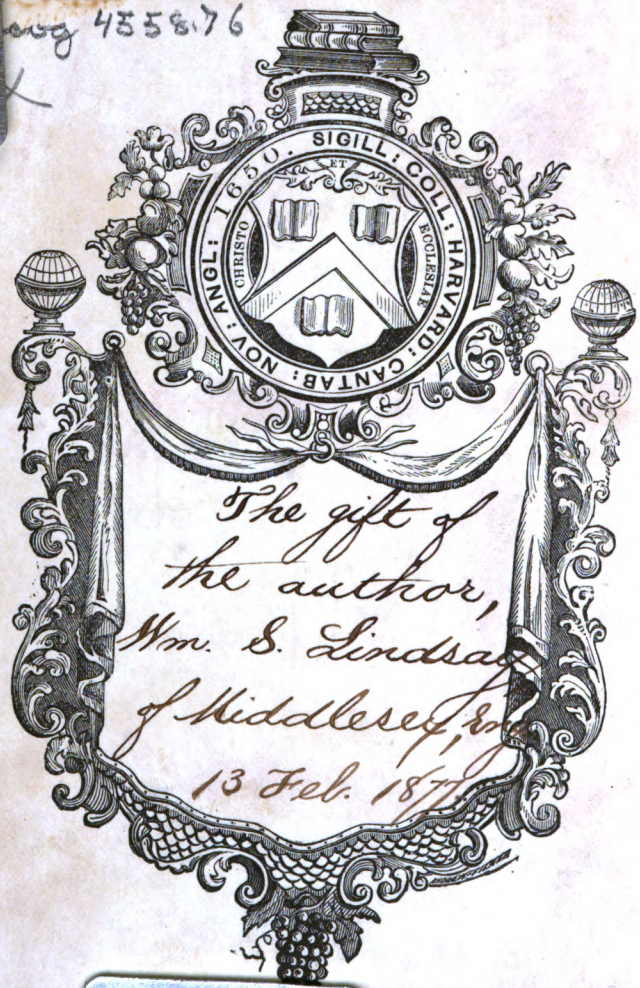 eng 4558.76
SIGILL: COLL: HARVARD: CANTAB: NOV: ANGL: 1650.
CHRISTO
ET
ECCLESIAE
The gift of
the author,
Wm. S. Lindsay
of Middlesex, Eng
13 Feb. 1877